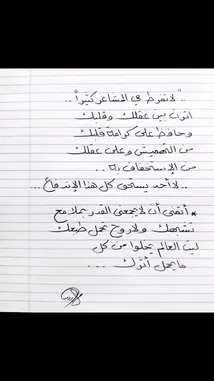 .. "لا تفرط في المشاعر كثيراً ..
اتزن بين عقلك وقلبك
وحافظ على كرامة قلبك
من التهميش وعلى عقلك
من الإستخفاف به ..
.. لا أحد يستحق كل هذا الاندفاع ...
* أتمنى أن لا يجمعني القدر بملامح
تشبهك ولا روح تحمل طبعك
ليت العالم يخلوا من كل
ما يحمل أثرك ...